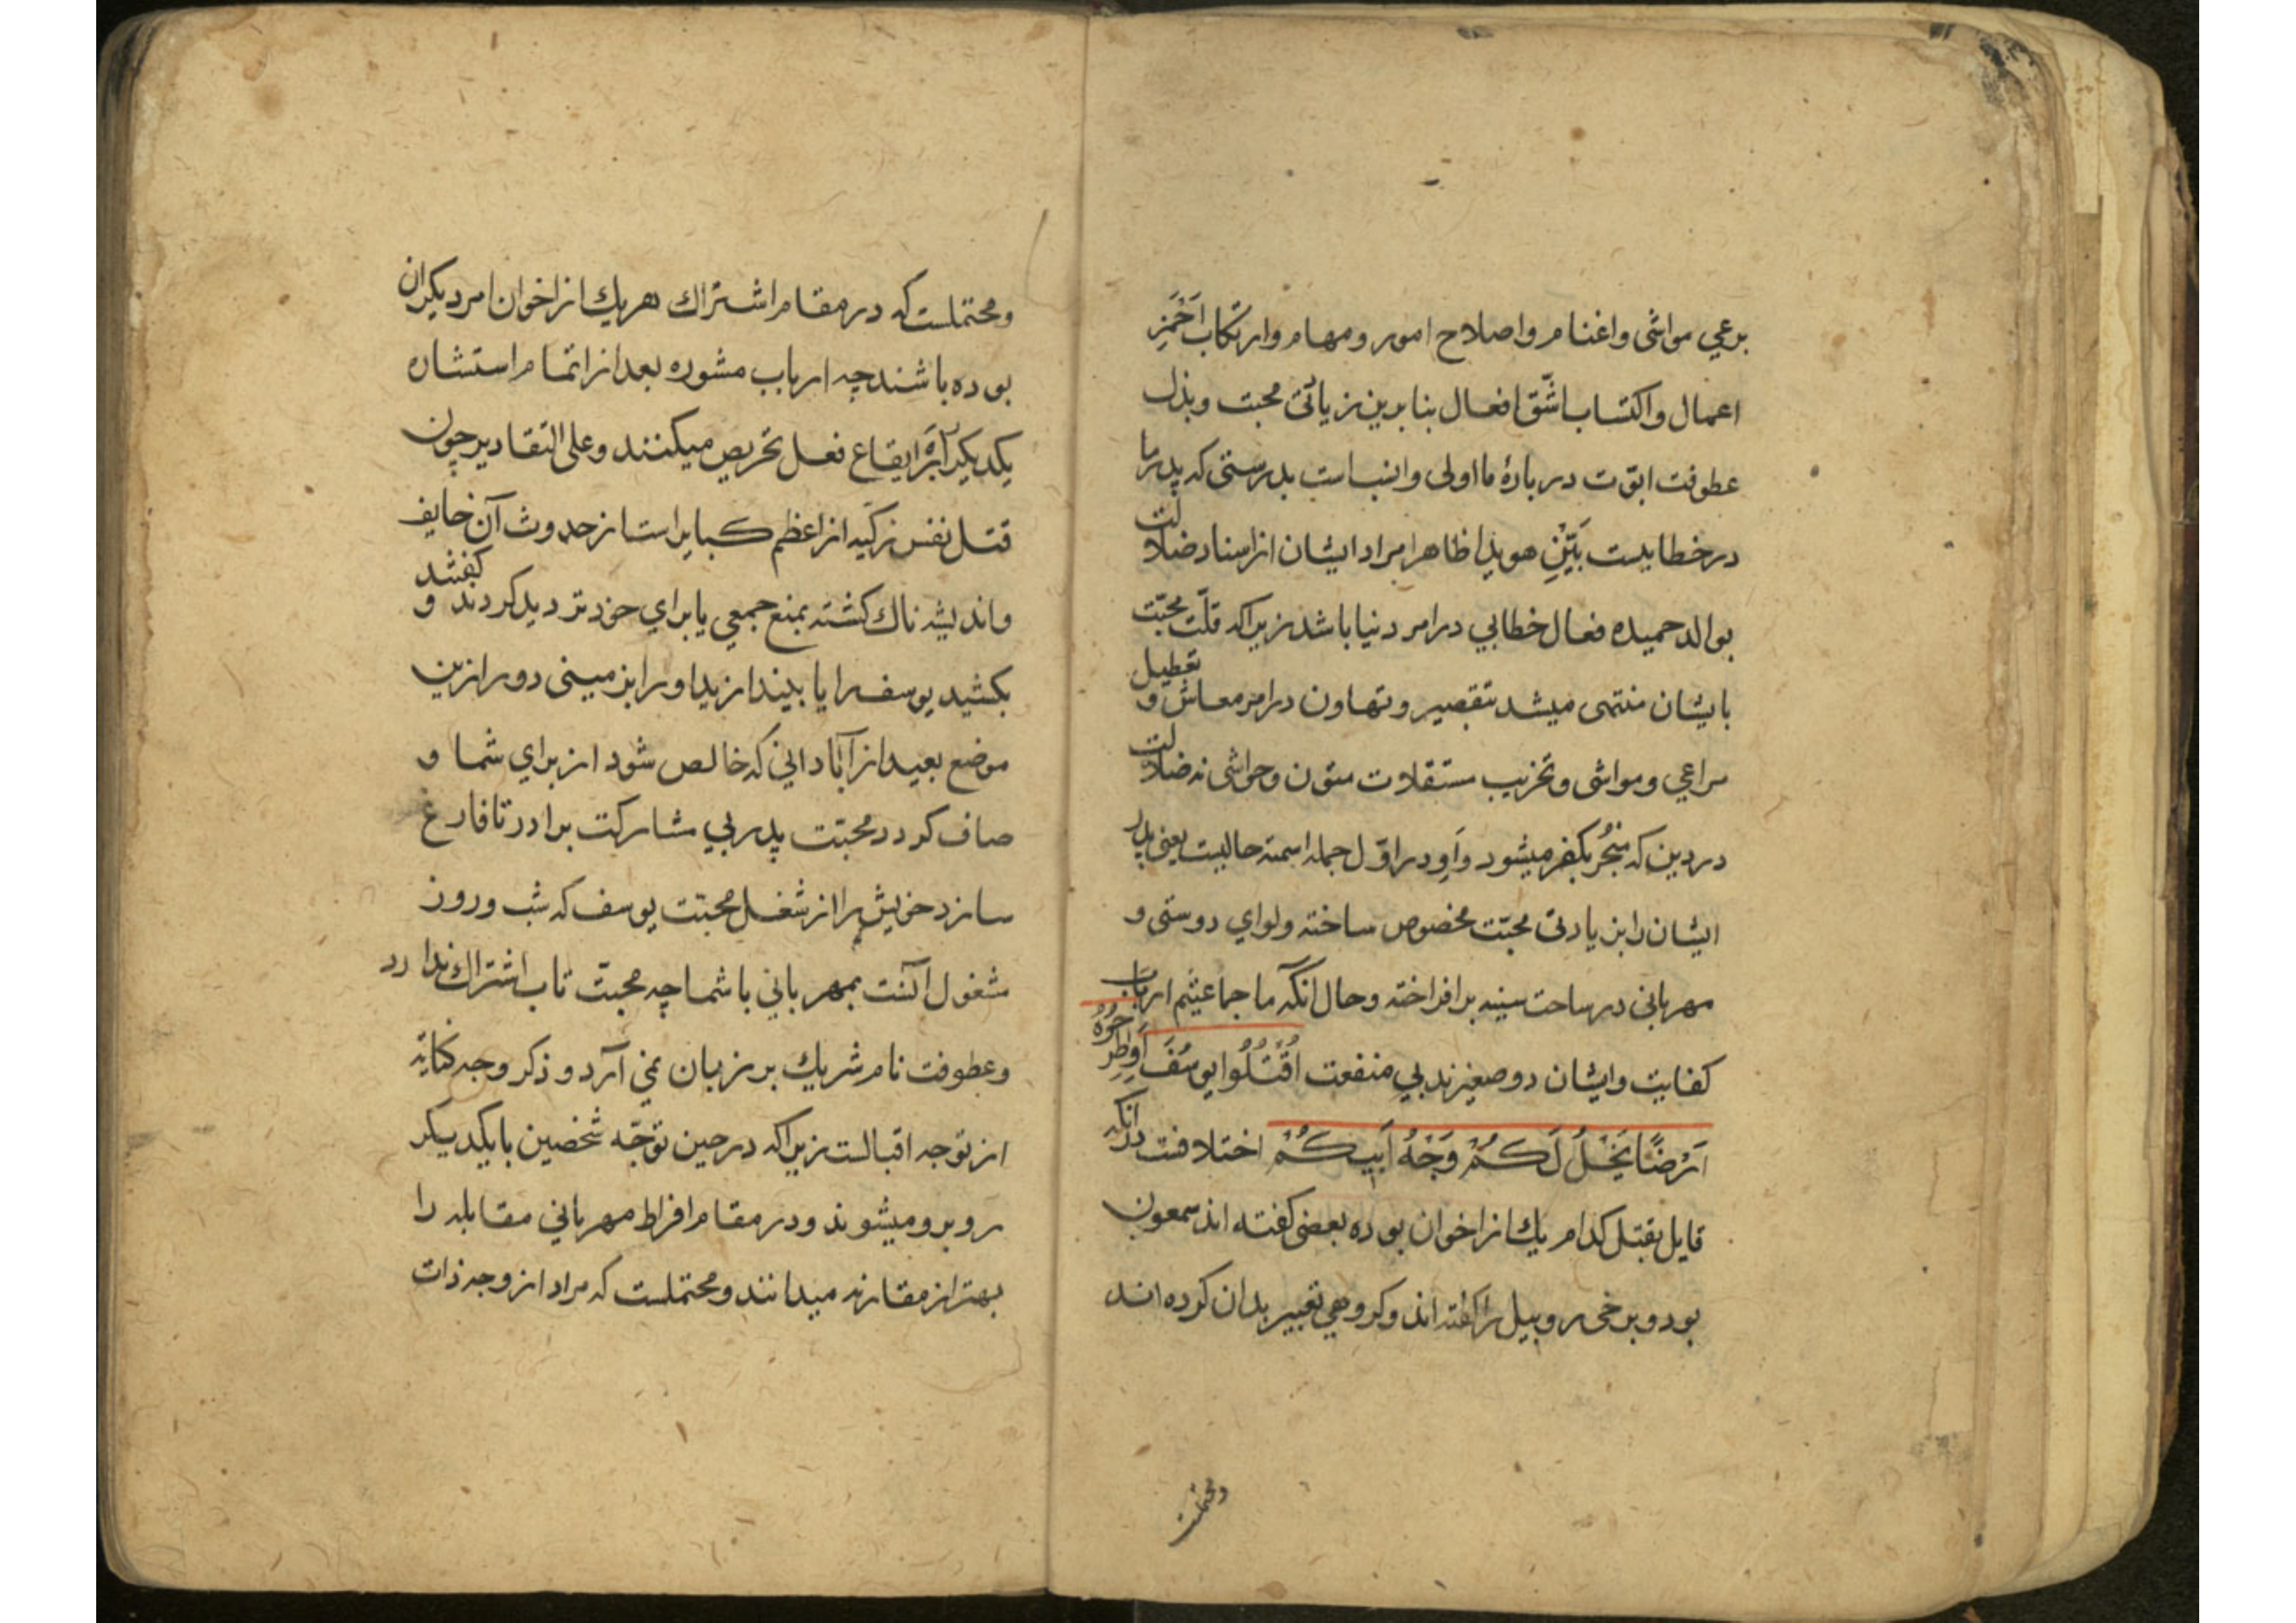 برعي مواشی واغنام واصلاح امور ومهام وارتکاب اَحْمَزِ
اعمال واکتساب اشّق افعال بنابرین زیادتی محبت وبذل
عطوفت ابوّت دربارهٔ ما اولی وانسباست بدرستی که پدرما
درخطاییست بَیّنِ هویدا ظاهرا مراد ایشان ازاسناد ضلالت
بوالد حمیده فعال خطایي درامر دنیا باشد زیراکه قلّت محبّت
بایشان منتهی میشد بتقصیر وتهاون درامر معاش و تعطیل
مراعي ومواشی وتخریب مستقلات متون وحواشی نه ضلالت
دردین که مُنجُر بکفر میشود وَاوِ دراوّل جمله اسمیّه حالیست یعنی پدر
ایشان رابزیادتئ محبّت مخصوص ساخته ولوای دوستی و
مهربانی درساحت سینه برافراخته وحال انکّه ما جماعتیم ارباب
کفایت وایشان دوصغیرندبي منفعت اُقْتُلُوا یوسُفَ اَوِاطْرَحُوهُ
اَرْضًا یَخْلُ لَکُمْ وَجْهُ اَبیکُمْ اختلافت درانکه
قایل بقتل کدام یك ازاخوان بوده بعضی کفته اند سمعون
بود وبرخی روبیل راکفته اند وکروهي تعبیر بدان کرده اند
ومحتملست
ومحتملست که درمقام اشتراك هریك ازاخوان امر دیکران
بوده باشند چه ارباب مشوره بعد ازاتمام استشاره
یکدیکر برایقاع فعل تحریص میکنند وعلی التقادیر چون
قتل نفس زکیّه ازاعظم کبایراست ازحدوث آن خایف
واندیشه ناك کشته بمنع جمعي یابراي خود تردید کردند و کفتند
بکشید یوسف را یا بیندازیداورا بزمینی دورازین
موضع بعید ازآباداني که خالص شود ازبراي شما و
صاف کردد محبّت پدر بي مشارکت برادر تا فارغ
سازد خویش را ازشغل محبّت یوسف که شب وروز
مشغول اکنت بمهرباني باشما چه محبّت تاب اشتراك ندارد
وعطوفت نام شریك برزبان نمي آرد و ذکر وجه کنایة
ازتوجه اقبالست زیراکه درحین توجّه شخصین بایکدیکر
روبرو میشوند ودرمقام افراط مهربانی مقابله را
بهتر ازمقارنه میدانند ومحتملست که مراد ازوجه ذات